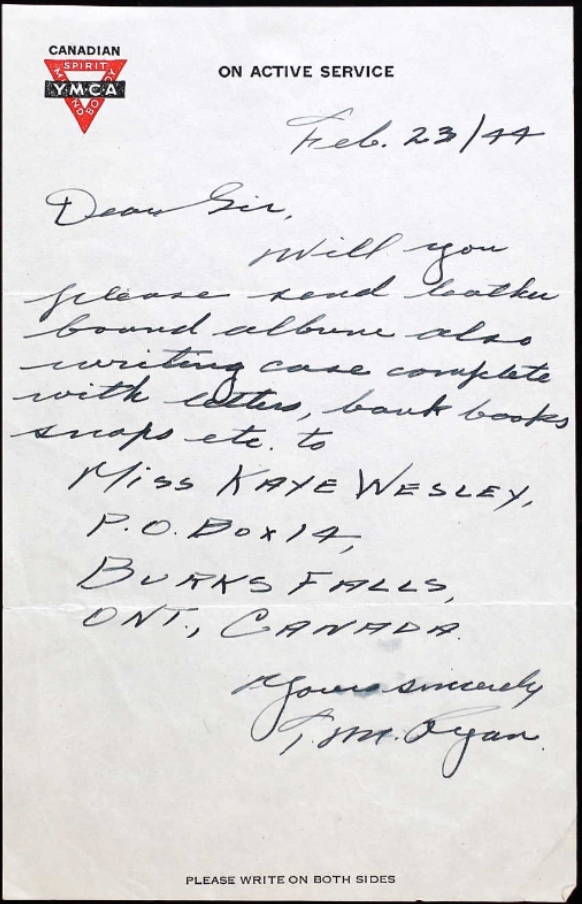 CANADIAN
SPIRIT
MIND
BODY
YMCA
ON ACTIVE SERVICE
Feb. 23/44
Dear Sir,
Will you
please send leather
bound album also
writing case complete
with letters, bank books
snaps etc. to
MISS KAYE WESLEY,
P.O. BOX 14,
BURKS FALLS,
ONT., CANADA.
Yours sincerely
T.M. Ryan.
PLEASE WRITE ON BOTH SIDES